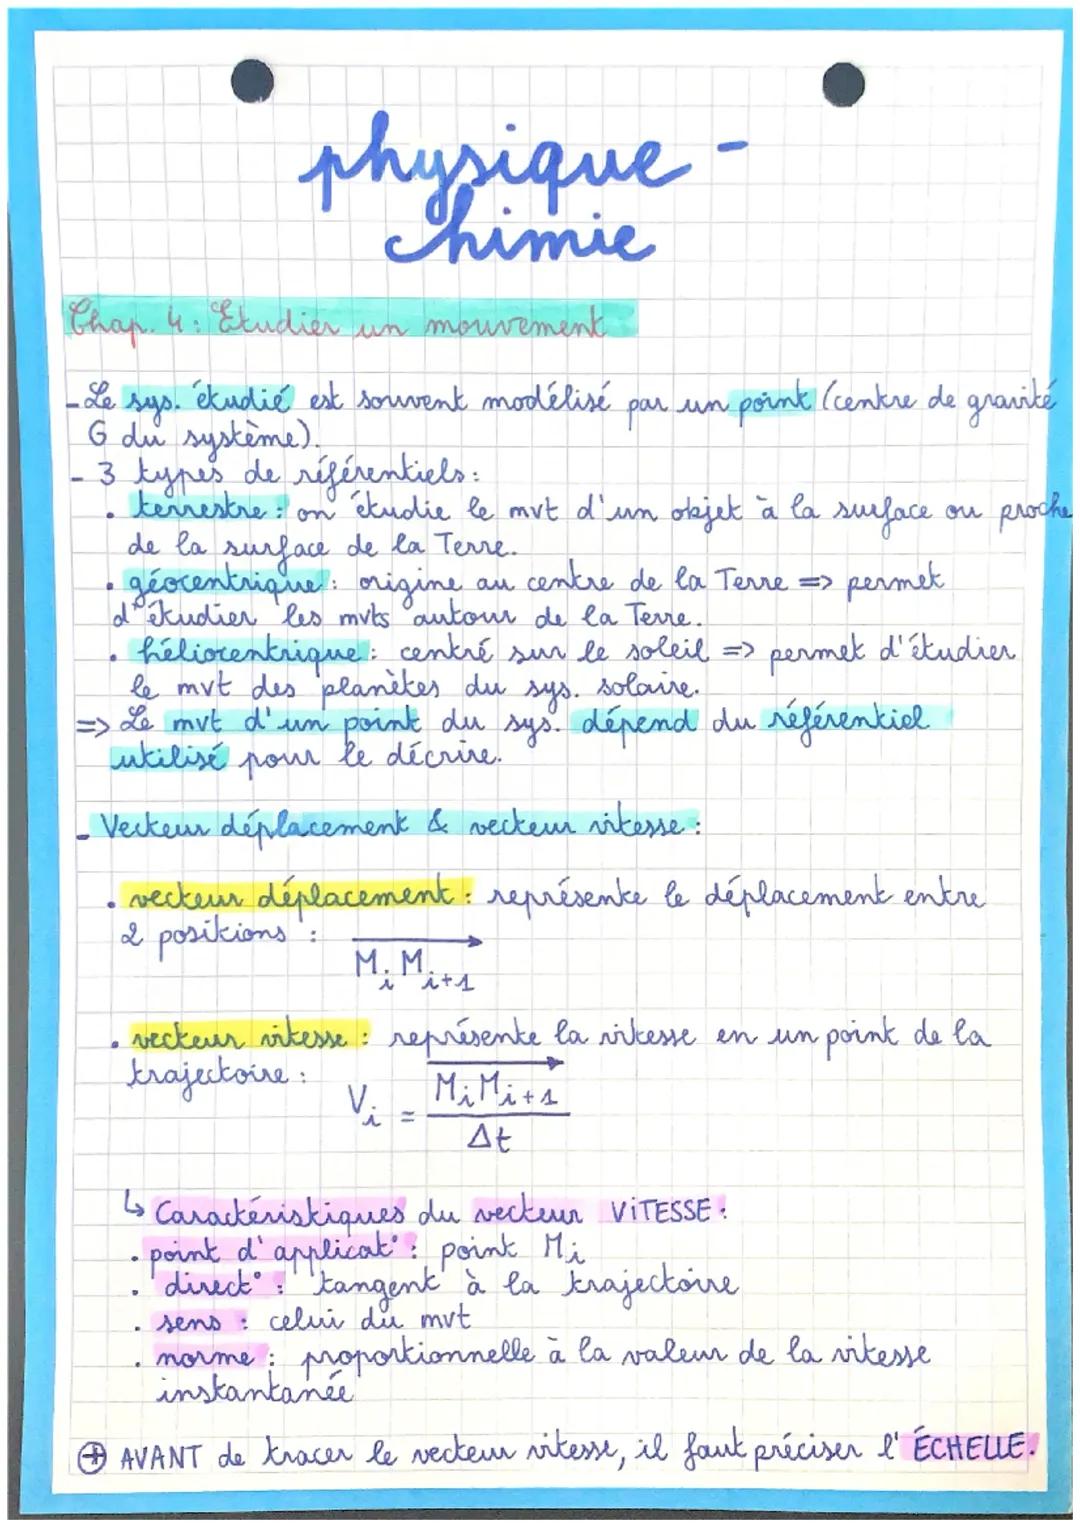 physique -
chimie
Chap. 4 : Etudier un mouvement
- Le sys. étudié est souvent modélisé par un point (centre de gravité
G du système).
- 3 types de référentiels :
. terrestre : on étudie le mvt d'un objet à la surface ou proche
de la surface de la Terre.
. géocentrique : origine au centre de la Terre => permet
d'étudier les mvts autour de la Terre.
. héliocentrique : centré sur le soleil => permet d'étudier
le mvt des planètes du sys. solaire.
=> Le mvt d'un point du sys. dépend du référentiel
utilisé pour le décrire.
- Vecteur déplacement & vecteur vitesse :
. vecteur déplacement : représente le déplacement entre
2 positions :
MiMi+1
. vecteur vitesse : représente la vitesse en un point de la
trajectoire :
Vi = MiMi+1
Δt
↳ Caractéristiques du vecteur ViTESSE :
. point d'applicat° : point Mi
. direct° : tangent à la trajectoire
. sens : celui du mvt
. norme : proportionnelle à la valeur de la vitesse
instantanée
⊕ AVANT de tracer le vecteur vitesse, il faut préciser l'ÉCHELLE.